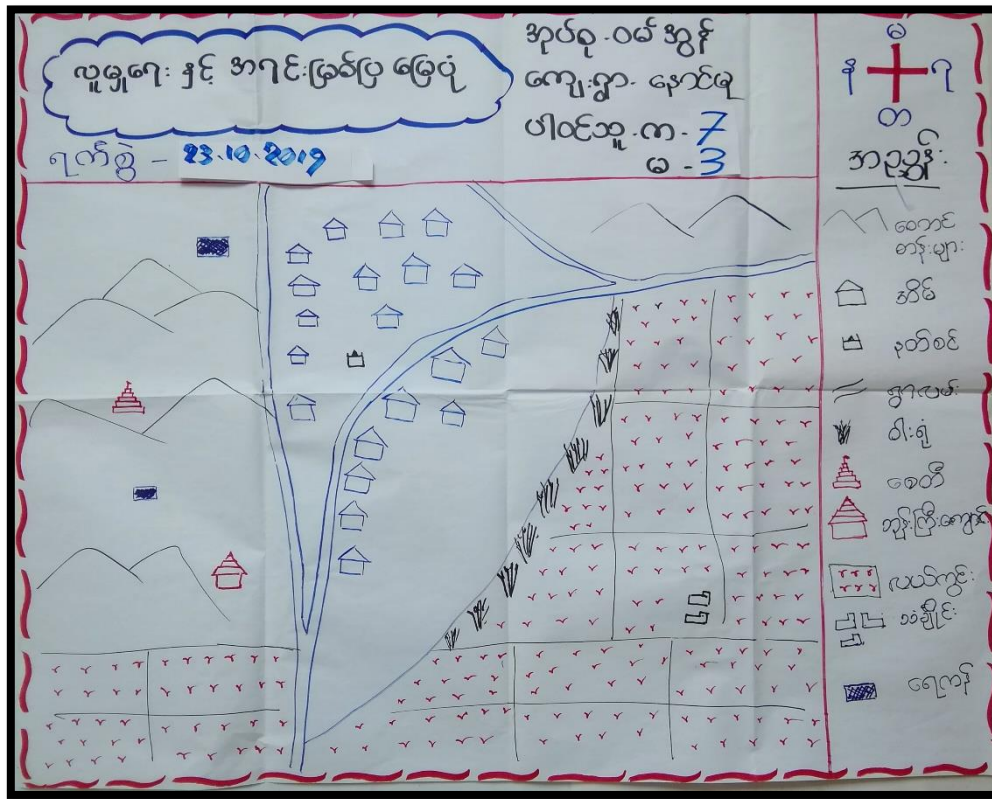 လူမှုရေး နှင့် အရင်းမြစ်ပြ မြေပုံ
ရက်စွဲ - 23.10.2019
အုပ်စု - ဝမ်အွန်
ကျေးရွာ - နောင်မု
ပါဝင်သူ - က - 7
မ - 3
မ
န
ရ
တ
အညွှန်း
တောင်
တန်းများ
အိမ်
နတ်စင်
ရွာလမ်း
ဝါးရုံ
စေတီ
ဘုန်းကြီးကျောင်း
လယ်ကွင်း
သင်္ချိုင်း
ရေကန်